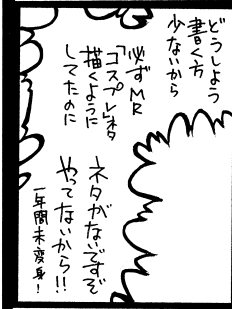 どうしよう
書く方
少ないから
必ずMR
「コスプレ」ネタ
描くように
してたのに
ネタがないですぞ
やってないから!!
一年間未変身!